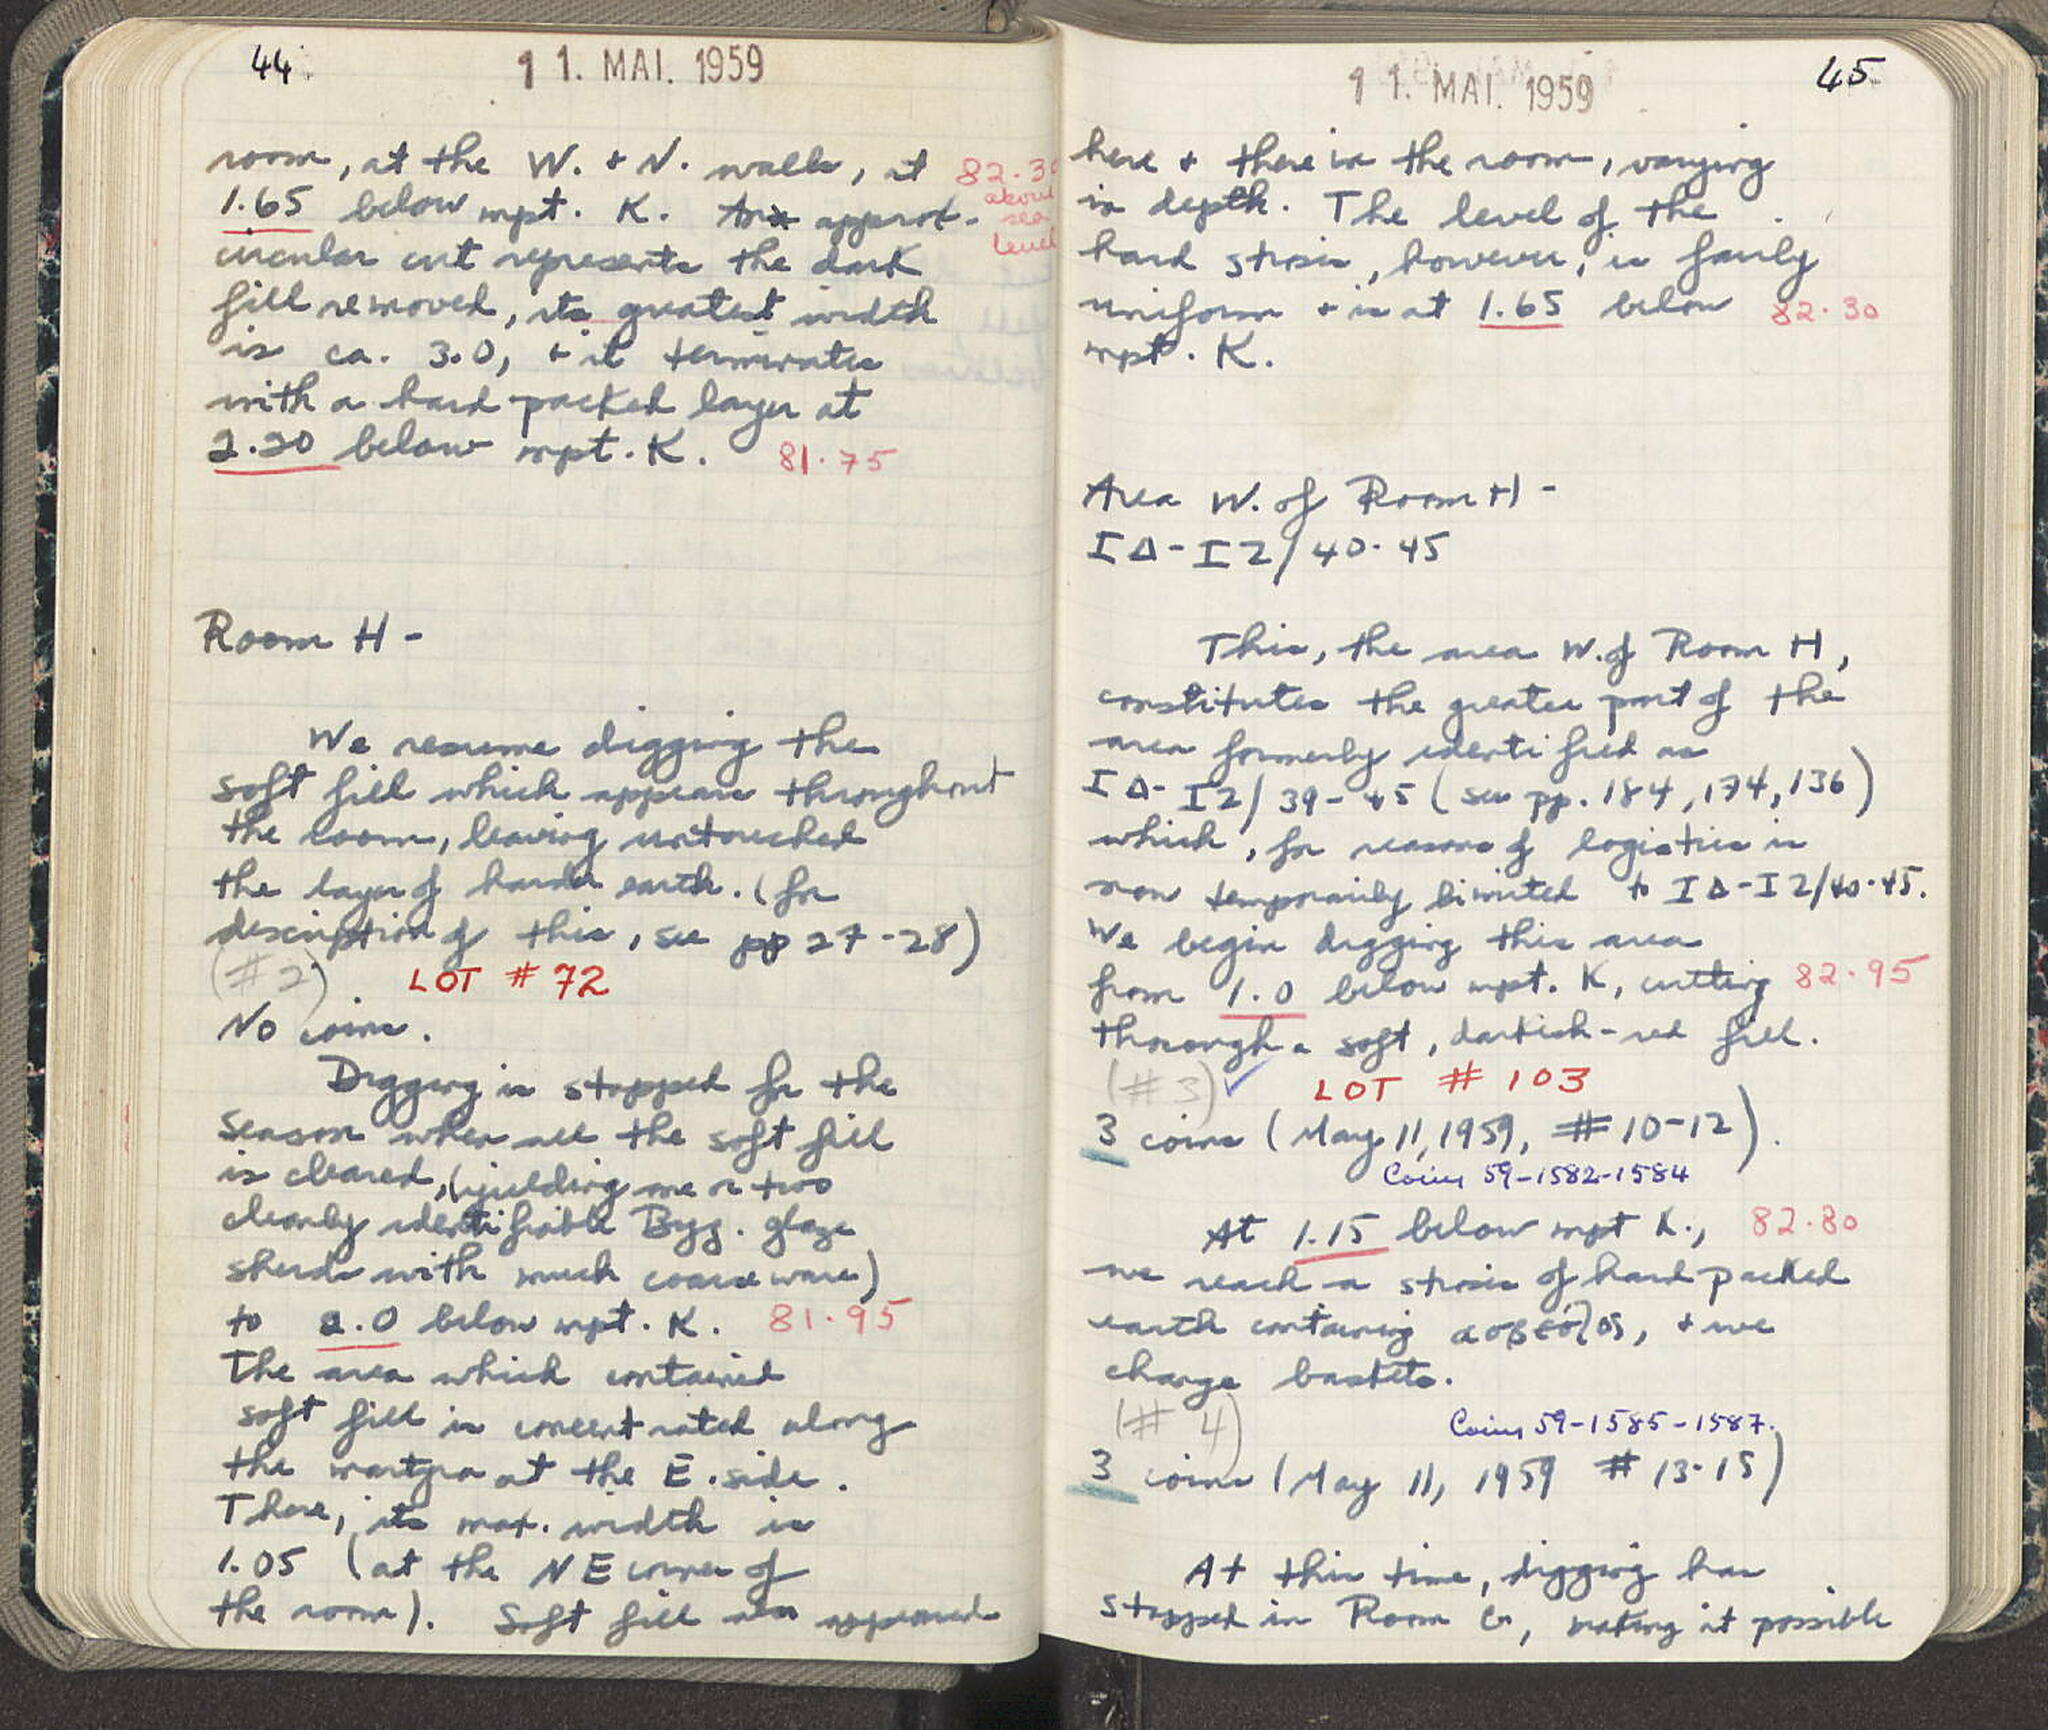 44
11. MAI. 1959
room, at the W. + N. walls, at 82.30
above
sea
level
1.65 below mpt. K. approx.
circular cut represents the dark
fill removed, its greatest width
is ca. 3.0, + it terminates
with a hard packed layer at
2.20 below mpt. K. 81.75
Room H -
We resume digging the
soft fill which appears throughout
the room, leaving untouched
the layer of harder earth. (for
description of this, see pp 27-28)
(#2) LOT # 72
No coins.
Digging is stopped for the
season when all the soft fill
is cleared, (yielding one or two
clearly identifiable Byz. glaze
sherds with much coarse ware)
to 2.0 below mpt. K. 81.95
The area which contained
soft fill is concentrated along
the martyra at the E. side.
There, its max. width is
1.05 (at the NE corner of
the room). Soft fill also appeared
11. MAI. 1959
45
here + there in the room, varying
in depth. The level of the
hard strosis, however, is fairly
uniform + is at 1.65 below 82.30
mpt. K.
Area W. of Room H -
ΙΔ-ΙΖ/40-45
This, the area W. of Room H,
constitutes the greater part of the
area formerly identified as
ΙΔ-ΙΖ/39-45 (see pp. 184, 174, 136)
which, for reasons of logistics is
now temporarily limited to ΙΔ-ΙΖ/40-45.
We begin digging this area
from 1.0 below mpt. K, cutting 82.95
through a soft, darkish-red fill.
(#3) ✓ LOT # 103
3 coins (May 11, 1959, #10-12).
Coins 59-1582-1584
At 1.15 below mpt K., 82.80
we reach a strosis of hard packed
earth containing + we
change baskets.
(# 4) Coins 59-1585-1587.
3 coins (May 11, 1959 # 13-15)
At this time, digging has
stopped in Room G, making it possible